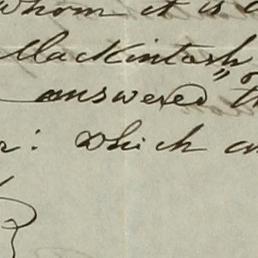 whom it is
MacKintosh
answered
: which